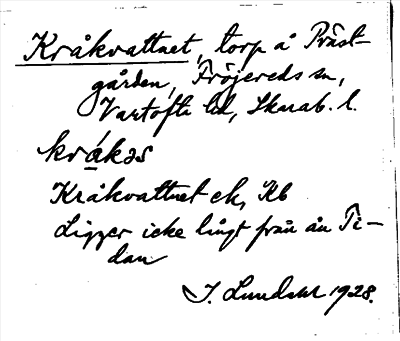 Kråkvattnet, torp å Präst-
gården, Fröjereds sn,
Vartofta hd, Skarab. l.
krákəs
Kråkvattnet ek, Kb
Ligger icke långt från ån Ti-
dan
J. Lundahl 1928.